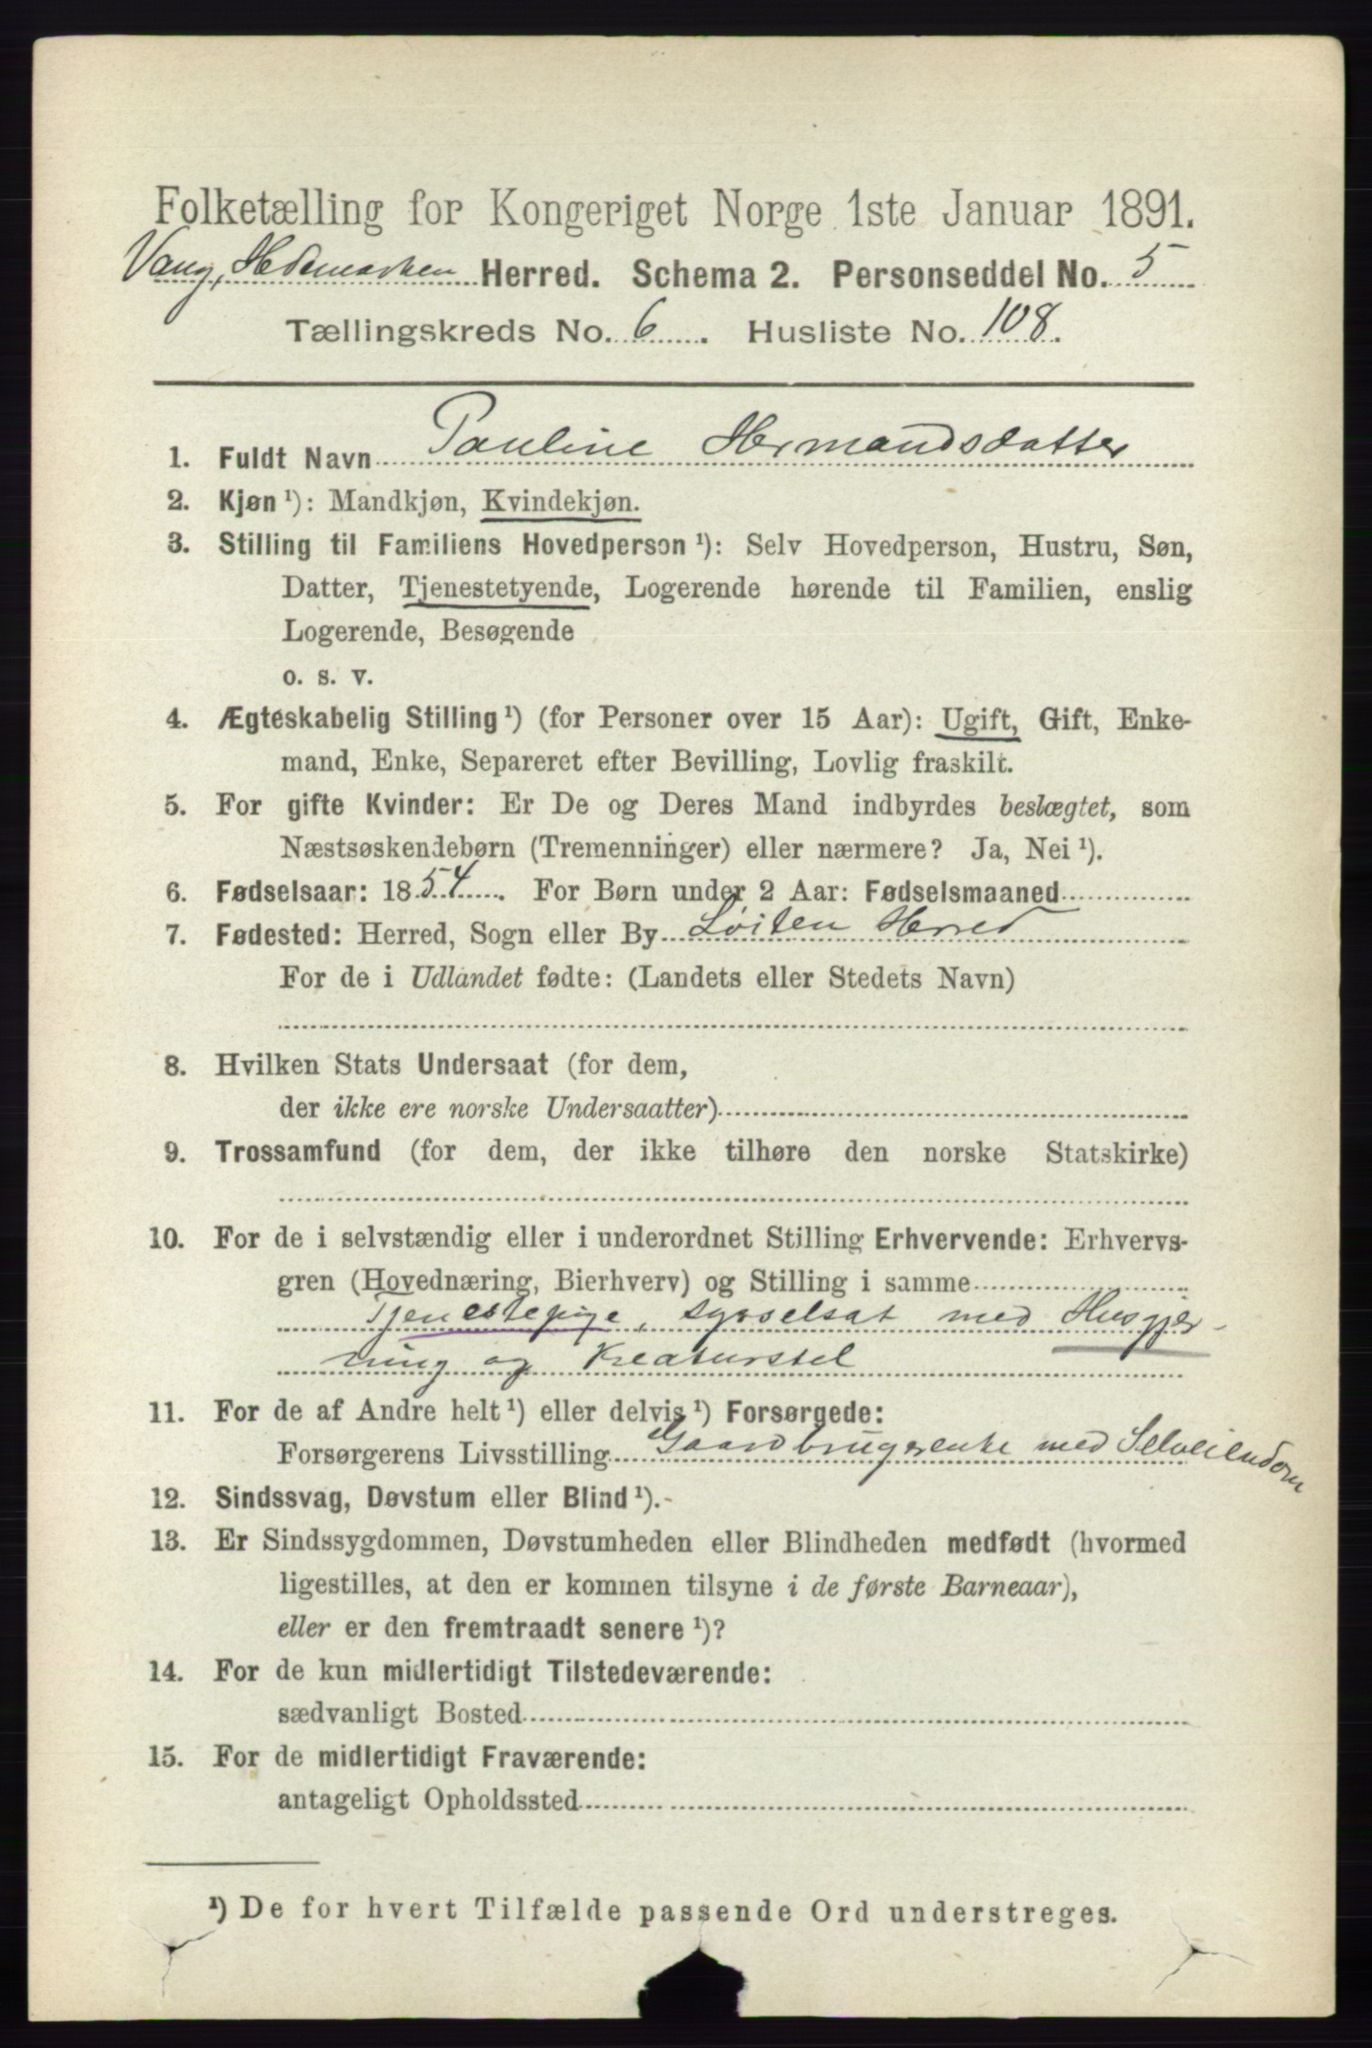 Folketælling for Kongeriget Norge 1ste Januar 1891.
Vang, Hedemarken Herred. Schema 2. Personseddel No. 5
Tællingskreds No. 6. Husliste No. 108.
1. Fuldt Navn Pauline Hermandsdatter
2. Kjøn ¹): Mandkjøn, Kvindekjøn.
3. Stilling til Familiens Hovedperson ¹): Selv Hovedperson, Hustru, Søn,
Datter, Tjenestetyende, Logerende hørende til Familien, enslig
Logerende, Besøgende
o. s. v.
4. Ægteskabelig Stilling ¹) (for Personer over 15 Aar): Ugift, Gift, Enke-
mand, Enke, Separeret efter Bevilling, Lovlig fraskilt.
5. For gifte Kvinder: Er De og Deres Mand indbyrdes beslægtet, som
Næstsøskendebørn (Tremenninger) eller nærmere? Ja, Nei ¹).
6. Fødselsaar: 1854. For Børn under 2 Aar: Fødselsmaaned
7. Fødested: Herred, Sogn eller By Løiten Herred
For de i Udlandet fødte: (Landets eller Stedets Navn)
8. Hvilken Stats Undersaat (for dem,
der ikke ere norske Undersaatter)
9. Trossamfund (for dem, der ikke tilhøre den norske Statskirke)
10. For de i selvstændig eller i underordnet Stilling Erhvervende: Erhvervs-
gren (Hovednæring, Bierhverv) og Stilling i samme
Tjenestepige, sysselsat med Husgjer-
ning og Kreaturstel
11. For de af Andre helt ¹) eller delvis ¹) Forsørgede:
Forsørgerens Livsstilling Gaardbrugerenke med Selveiendom
12. Sindssvag, Døvstum eller Blind ¹).
13. Er Sindssygdommen, Døvstumheden eller Blindheden medfødt (hvormed
ligestilles, at den er kommen tilsyne i de første Barneaar),
eller er den fremtraadt senere ¹)?
14. For de kun midlertidigt Tilstedeværende:
sædvanligt Bosted
15. For de midlertidigt Fraværende:
antageligt Opholdssted
¹) De for hvert Tilfælde passende Ord understreges.